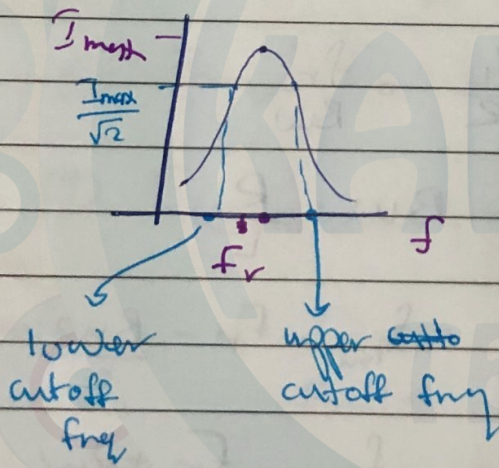 Imax
Imax
√2
fr
f
lower
cutoff
frq
upper
cutoff frq